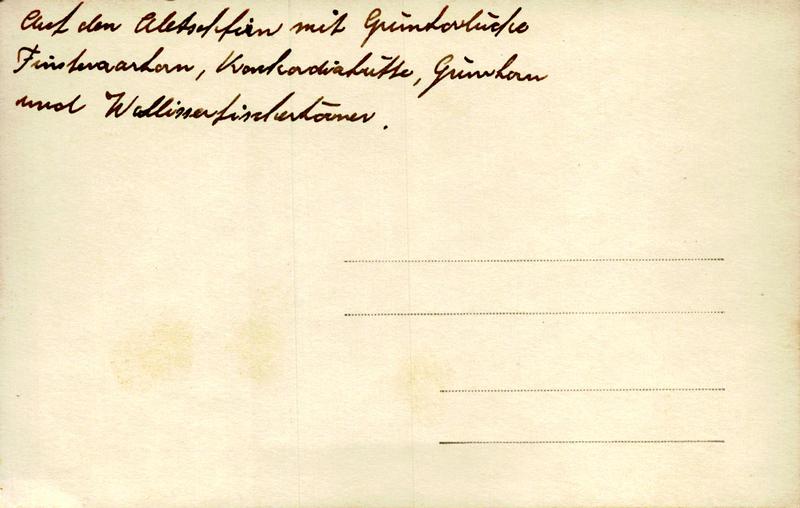 Auf den Aletschfirn mit Grünhorlücke
Finsteraarhorn, Konkordiahütte, Grünhorn
und Walliserfischerhörner.